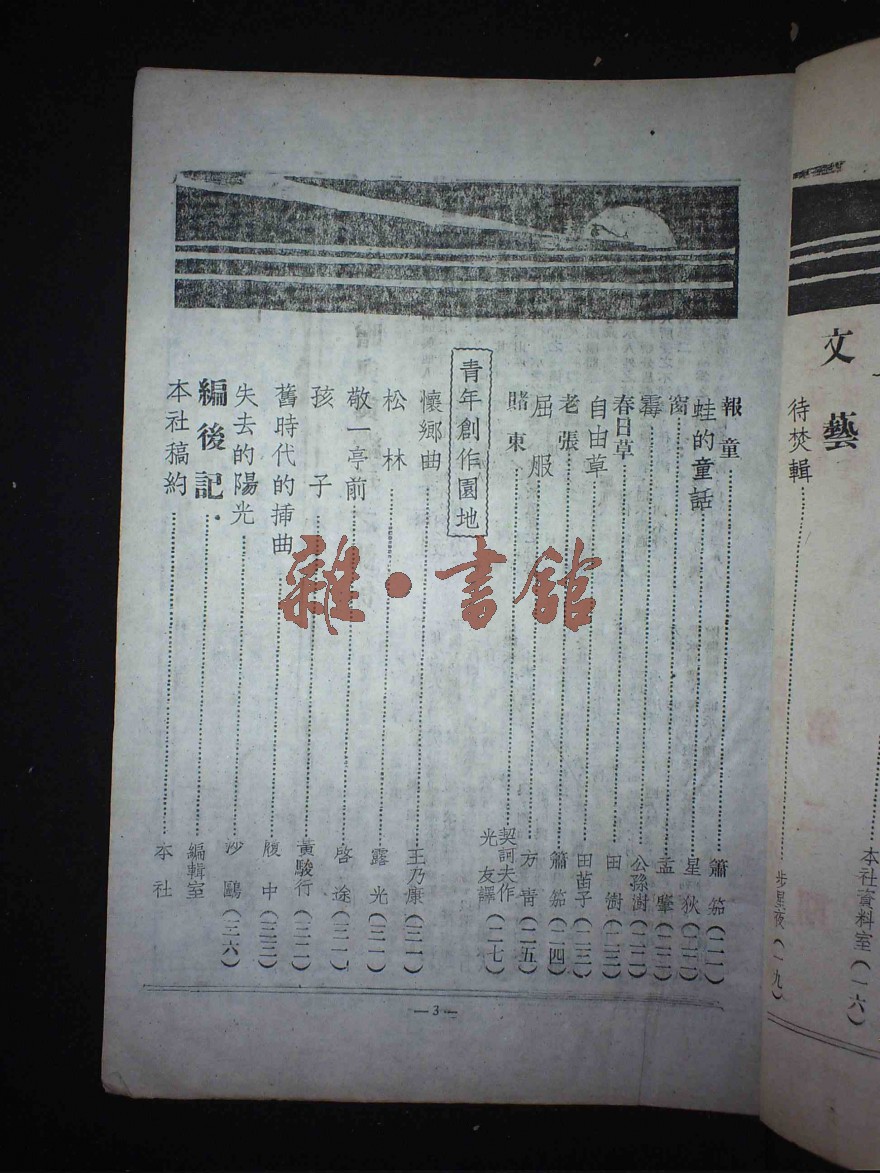 文藝
待焚輯 步星夜(一九)
本社資料室(一六)
報童 簫笳(二一)
蛙的童話 星狄(二二)
窗 孟肇(二二)
霉 公孫澍(二二)
春日草 田澍(二三)
自由草 田苗子(二三)
老張 簫笳(二四)
屈服 方青(二五)
賭東 契訶夫作 光友譯(二七)
青年創作園地
懷鄉曲 王乃康(三一)
松林 露光(三一)
敬一亭前 啓途(三二)
孩子 黃駿行(三二)
舊時代的插曲 腹中(三三)
失去的陽光 沙鷗(三六)
編後記 編輯室
本社稿約 本社
—3—
雜·書館